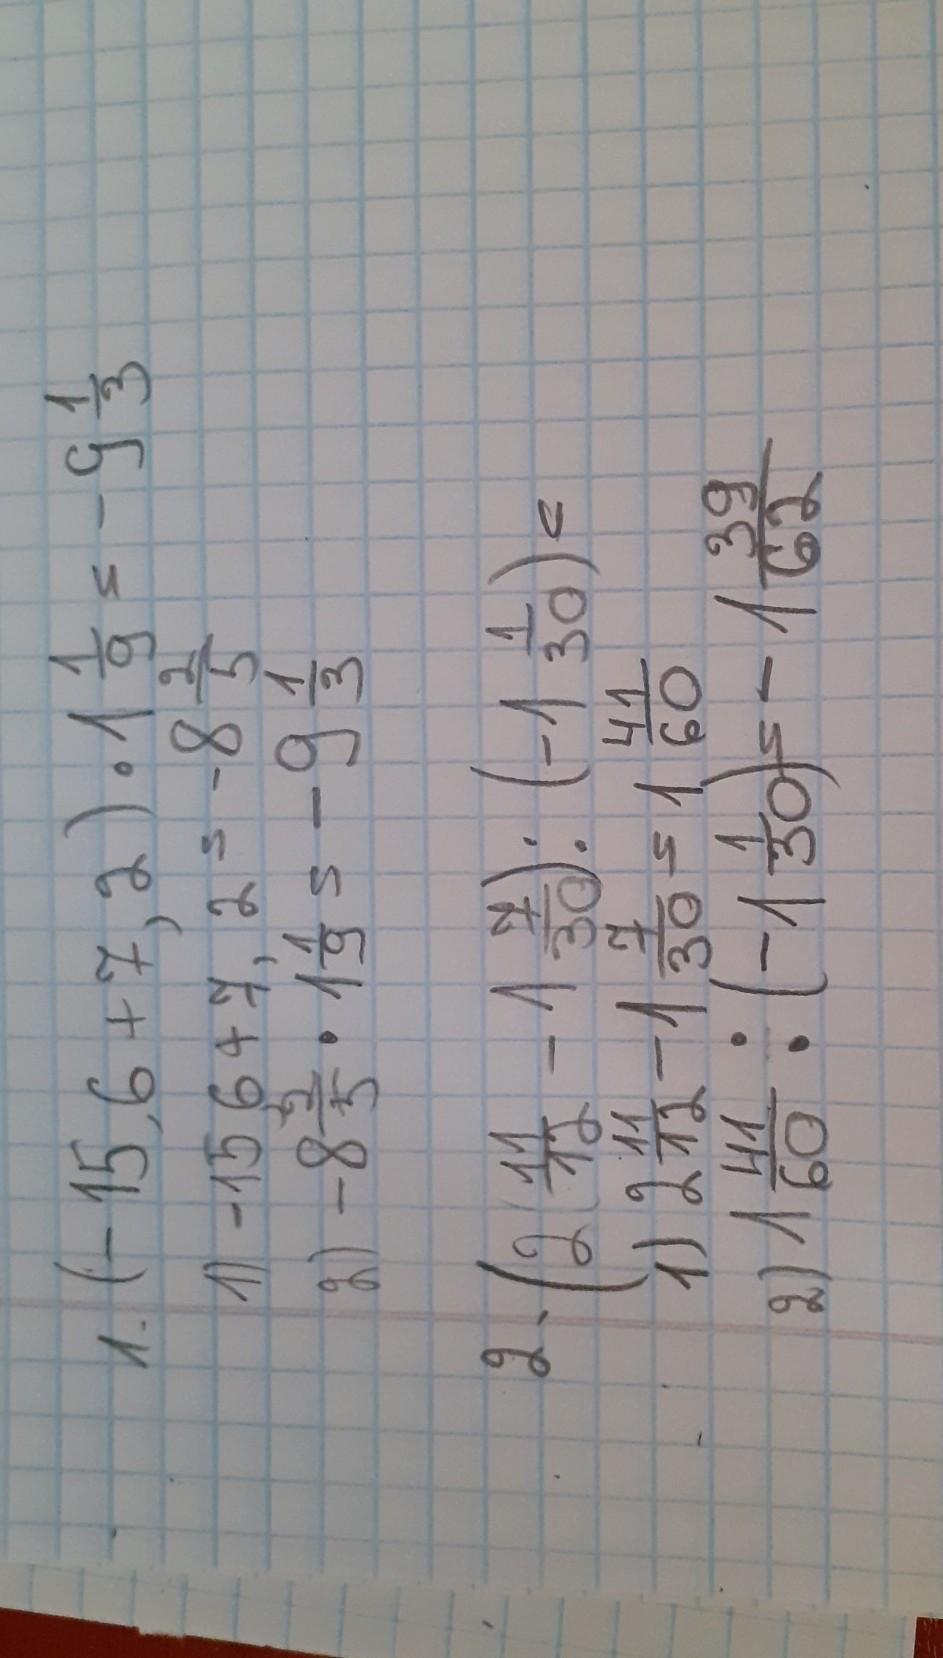 1. (-15,6+7,2)·1 1/9 = -9 1/3
1) -15 6+7,2 = -8 2/5
2) -8 2/5 · 1 1/9 = -9 1/3
2. (2 11/12 - 1 7/30) : (-1 1/30) =
1) 2 11/12 - 1 7/30 = 1 41/60
2) 1 41/60 : (-1 1/30) = -1 39/62